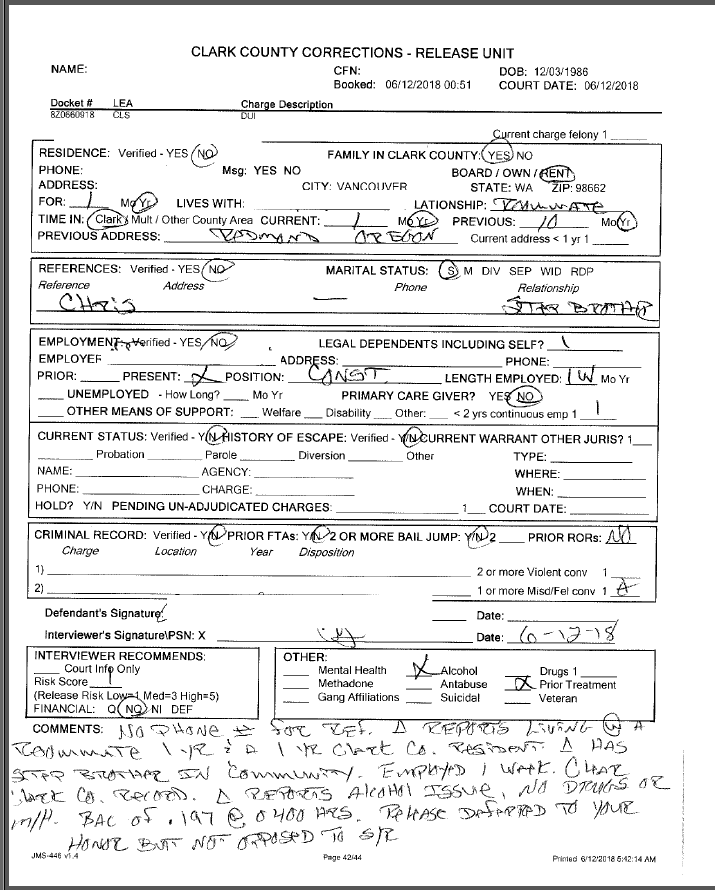 CLARK COUNTY CORRECTIONS - RELEASE UNIT
NAME: CFN: DOB: 12/03/1986
Booked: 06/12/2018 00:51 COURT DATE: 06/12/2018
Docket # LEA Charge Description
8Z0660918 CLS DUI
Current charge felony 1 ______
RESIDENCE: Verified - YES / NO FAMILY IN CLARK COUNTY: YES / NO
PHONE: Msg: YES NO BOARD / OWN / RENT
ADDRESS: CITY: VANCOUVER STATE: WA ZIP: 98662
FOR: 1 Mo Yr LIVES WITH: LATIONSHIP: ROOMMATE
TIME IN: Clark / Mult / Other County Area CURRENT: 1 Mo Yr PREVIOUS: 10 Mo Yr
PREVIOUS ADDRESS: REDMOND OREGON Current address < 1 yr 1 ______
REFERENCES: Verified - YES / NO MARITAL STATUS: S M DIV SEP WID RDP
Reference Address Phone Relationship
CHRIS — STEP BROTHER
EMPLOYMENT: Verified - YES / NO LEGAL DEPENDENTS INCLUDING SELF? 1
EMPLOYER ADDRESS: PHONE:
PRIOR: PRESENT: X POSITION: CONST LENGTH EMPLOYED: 1 W Mo Yr
____ UNEMPLOYED - How Long? ____ Mo Yr PRIMARY CARE GIVER? YES / NO
____ OTHER MEANS OF SUPPORT: ____ Welfare ____ Disability ____ Other: ____ < 2 yrs continuous emp 1 1
CURRENT STATUS: Verified - Y/N HISTORY OF ESCAPE: Verified - Y/N CURRENT WARRANT OTHER JURIS? 1___
Probation Parole Diversion Other TYPE:
NAME: AGENCY: WHERE:
PHONE: CHARGE: WHEN:
HOLD? Y/N PENDING UN-ADJUDICATED CHARGES: 1__ COURT DATE:
CRIMINAL RECORD: Verified - Y/N PRIOR FTAs: Y/N 2 OR MORE BAIL JUMP: Y/N 2 ____ PRIOR RORs: NO
Charge Location Year Disposition
1) 2 or more Violent conv 1 ____
2) 1 or more Misd/Fel conv 1
Defendant's Signature: Date:
Interviewer's Signature\PSN: X Date: 6-12-18
INTERVIEWER RECOMMENDS: OTHER:
____ Court Info Only ____ Mental Health X Alcohol ____ Drugs 1
Risk Score 1 ____ Methadone ____ Antabuse X Prior Treatment
(Release Risk Low=1 Med=3 High=5) ____ Gang Affiliations ____ Suicidal ____ Veteran
FINANCIAL: Q NQ NI DEF
COMMENTS: NO PHONE # FOR REF. Δ REPORTS LIVING W A
ROOMMATE 1 YR & A 1 YR CLARK CO. RESIDENT. Δ HAS
STEP BROTHER IN COMMUNITY. EMPLOYED 1 WEEK. CLEAR
CLARK CO. RECORD. Δ REPORTS ALCOHOL ISSUE, NO DRUGS OR
M/H. BAC OF .197 @ 0400 HRS. RELEASE DEFERRED TO YOUR
HONOR BUT NOT OPPOSED TO S/R
JMS-446 v1.4 Page 42/44 Printed 6/12/2018 5:42:14 AM